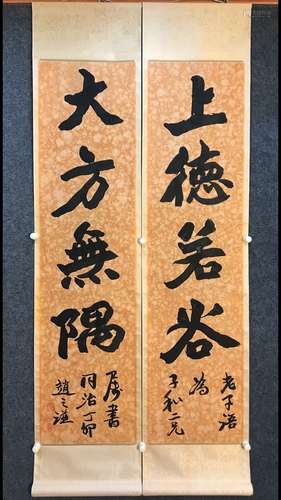 上德若谷
老子語
為
子和二兄
大方無隅
屬書
同治丁卯
趙之謙